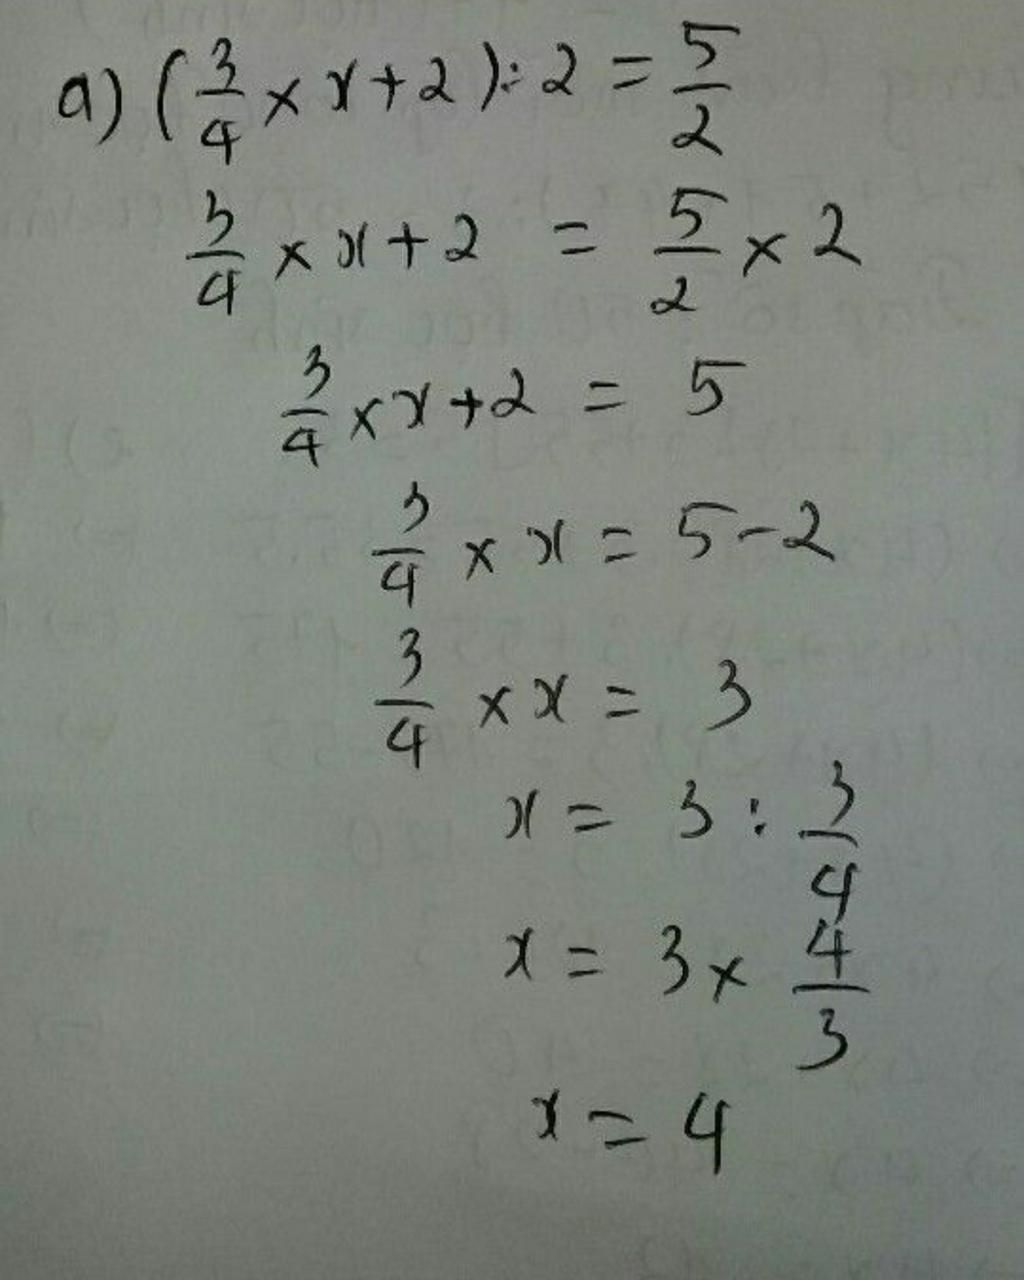 a) (3/4 × x + 2) : 2 = 5/2
3/4 × x + 2 = 5/2 × 2
3/4 × x + 2 = 5
3/4 × x = 5 - 2
3/4 × x = 3
x = 3 : 3/4
x = 3 × 4/3
x = 4